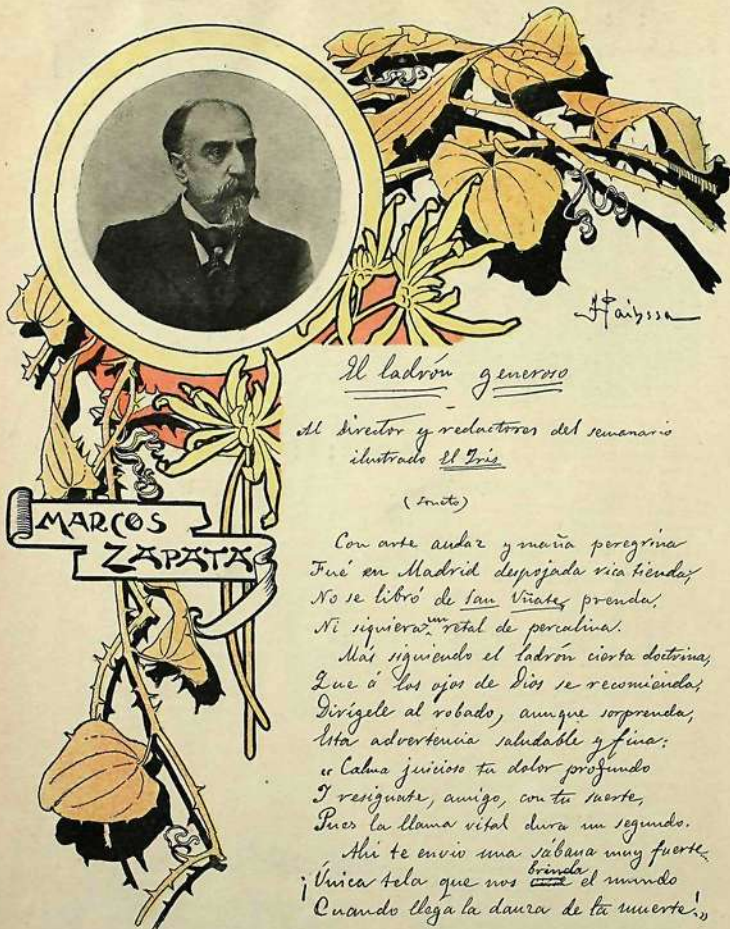 J Passos
MARCOS
ZAPATA
El ladrón generoso
Al Director y redactores del semanario
ilustrado El Iris
(Soneto)
Con arte audaz y maña peregrina
Fué en Madrid despojada rica tienda;
No se libró de San Uñate, prenda,
Ni siquiera un retal de percalina.
Más siguiendo el ladrón cierta doctrina,
Que á los ojos de Dios se recomienda,
Dirígele al robado, aunque sorprenda,
Esta advertencia saludable y fina:
"Calma juicioso tu dolor profundo
Y resignate, amigo, con tu suerte,
Pues la llama vital dura un segundo.
Ahi te envio una sábana muy fuerte
¡Única tela que nos brinda el mundo
Cuando llega la danza de la muerte!"